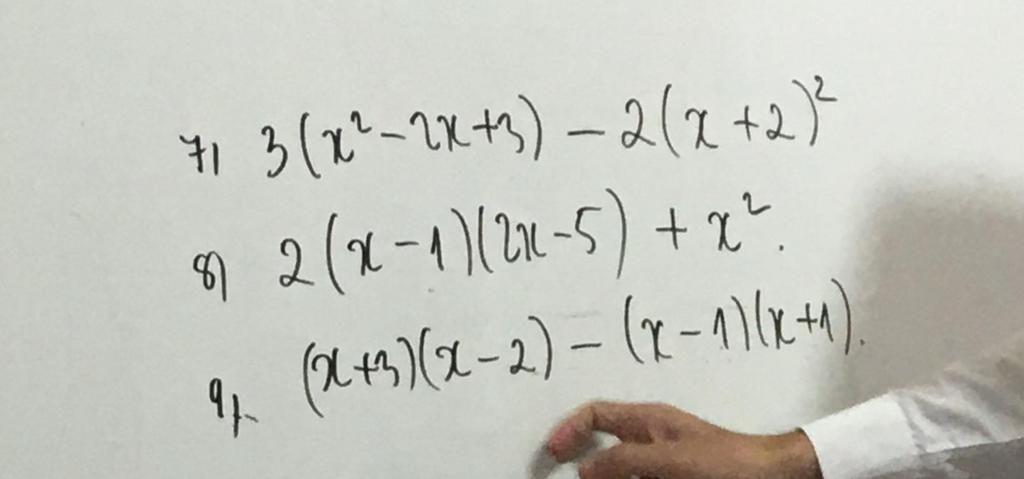 7) 3(x²-2x+3) - 2(x+2)²
8) 2(x-1)(2x-5) + x².
9). (x+3)(x-2) - (x-1)(x+1).